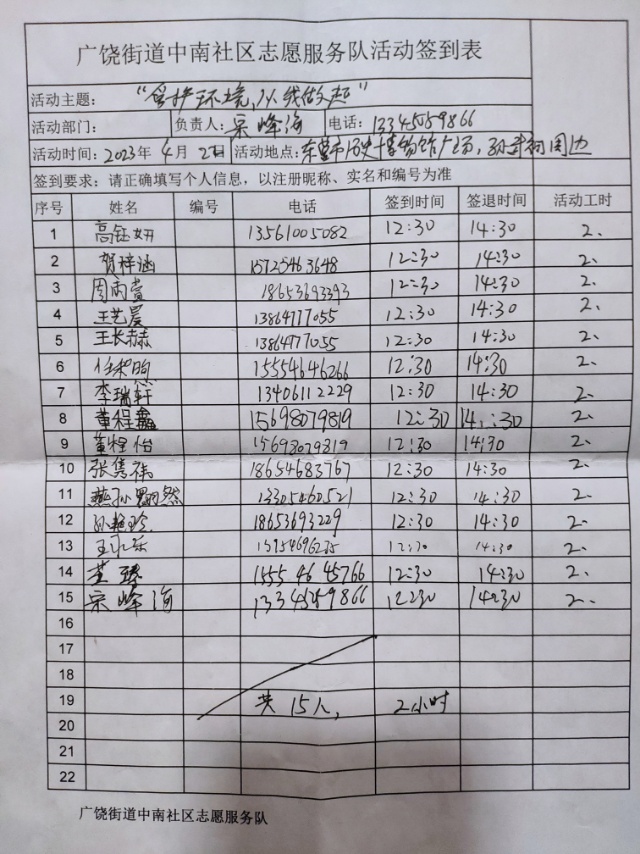 广饶街道中南社区志愿服务队活动签到表
活动主题： 环境,从我做起"
活动部门： 负责人：宋峰海 电话：13345059866
活动时间：2023年4月2日 活动地点：东营市历史博物馆广场,孙武祠周边
签到要求：请正确填写个人信息，以注册昵称、实名和编号为准
序号 姓名 编号 电话 签到时间 签退时间 活动工时
1 高钰妍 13561005082 12:30 14:30 2.
2 贺梓涵 15725463648 12:30 14:30 2.
3 周雨萱 18653693393 12:30 14:30 2.
4 王艺晨 13864977055 12:30 14:30 2.
5 王长赫 13864977055 12:30 14:30 2.
6 15554646266 12:30 14:30 2.
7 李瑞轩 13406112229 12:30 14:30 2.
8 董程鑫 15698079819 12:30 14:30 2.
9 董程怡 15698079819 12:30 14:30 2.
10 张隽祎 18654683767 12:30 14:30 2.
11 燕孙 然 13305460521 12:30 14:30 2.
12 孙艳玲 18653693229 12:30 14:30 2.
13 王 12:30 14:30 2.
14 15554645766 12:30 14:30 2.
15 宋峰海 13345059866 12:30 14:30 2.
16
17
18
19 共15人, 2小时
20
21
22
广饶街道中南社区志愿服务队